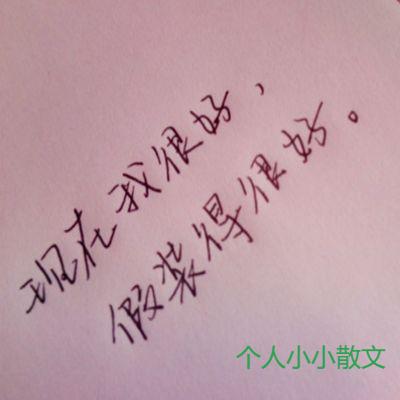 现在我很好，
假装得很好。
个人小小散文